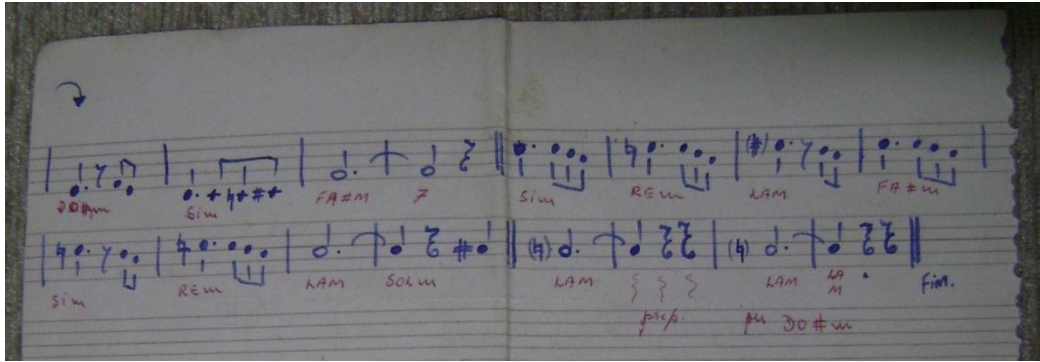 DO#m Sim FA#M 7 Sim REm LAM FA#m
Sim REm LAM SOLm LAM LAM LA M Fim.
prep. pu DO#m